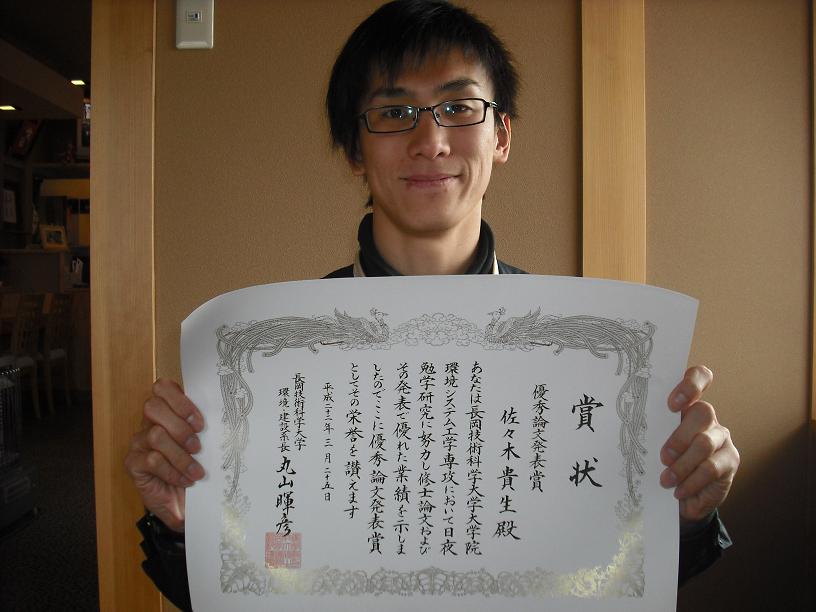 賞状
優秀論文発表賞
佐々木貴生殿
あなたは長岡技術科学大学大学院
環境システム工学専攻において日夜
勉学研究に努力し修士論文および
その発表で優れた業績を示しま
したのでここに優秀論文発表賞
としてその栄誉を讃えます
平成二十三年三月二十五日
長岡技術科学大学
環境・建設系長 丸山暉彦